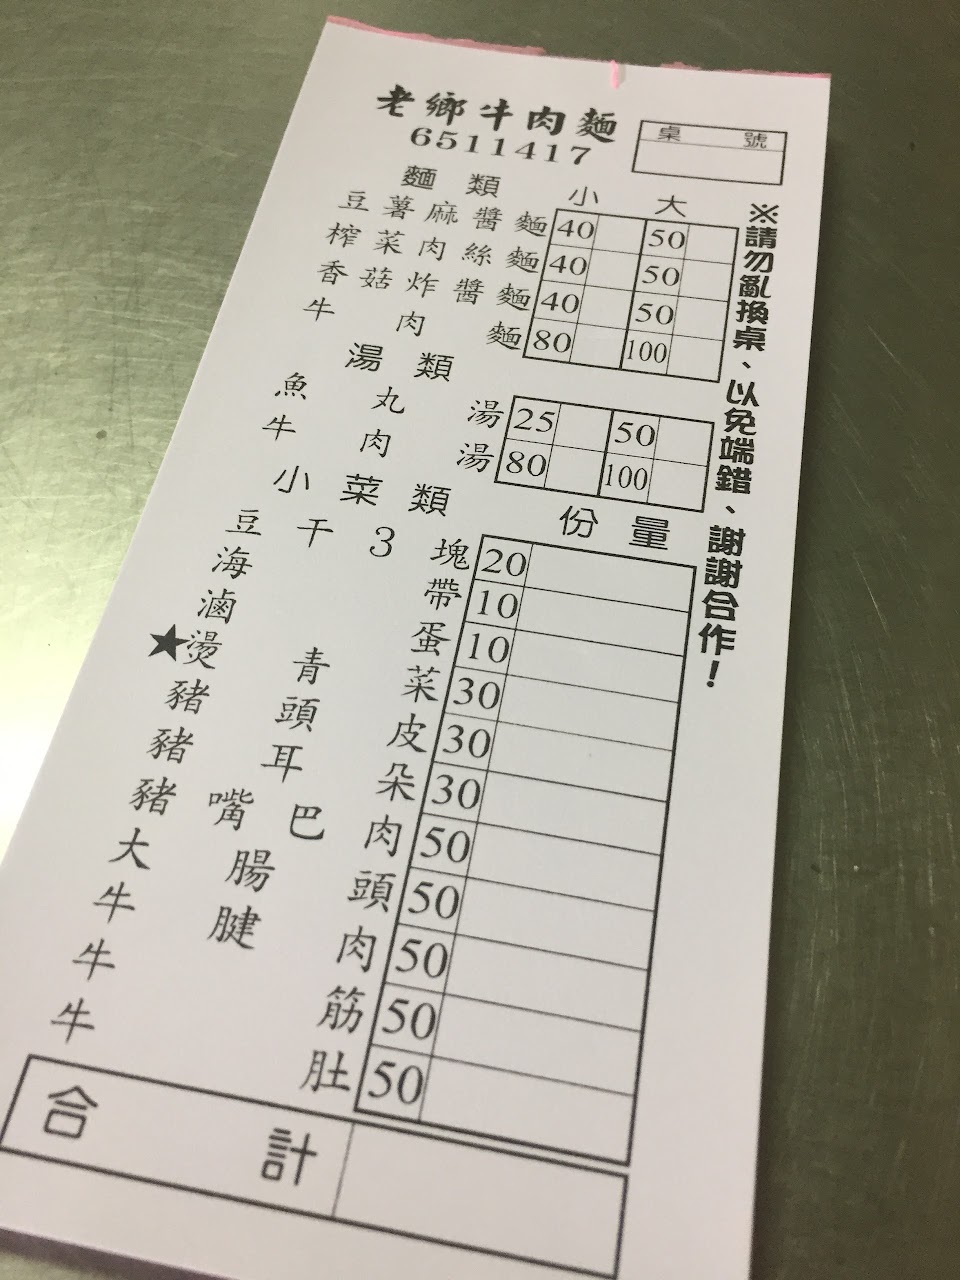 老鄉牛肉麵
6511417
桌 號
麵類 小 大
豆薯麻醬麵 40 50
榨菜肉絲麵 40 50
香菇炸醬麵 40 50
牛肉麵 80 100
湯類
魚丸湯 25 50
牛肉湯 80 100
小菜類 份量
豆干3塊 20
海帶 10
滷蛋 10
★燙青菜 30
豬頭皮 30
豬耳朵 30
豬嘴巴肉 50
大腸頭 50
牛腱肉 50
牛筋 50
牛肚 50
合計
※請勿亂換桌、以免端錯、謝謝合作！